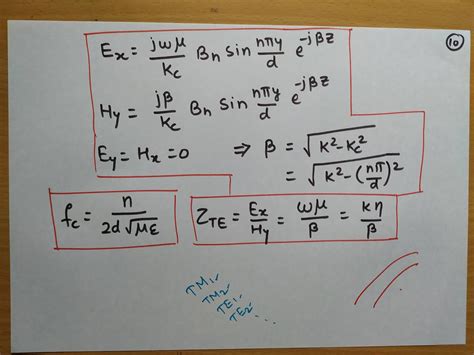 10
Ex = jωμ/kc Bn sin nπy/d e^-jβz
Hy = jβ/kc Bn sin nπy/d e^-jβz
Ey = Hx = 0 ⇒ β = √(k²-kc²)
= √(k²-(nπ/d)²)
fc = n/2d√με
ZTE = Ex/Hy = ωμ/β = kη/β
TM1,
TM2,
TE1,
TE2, ...